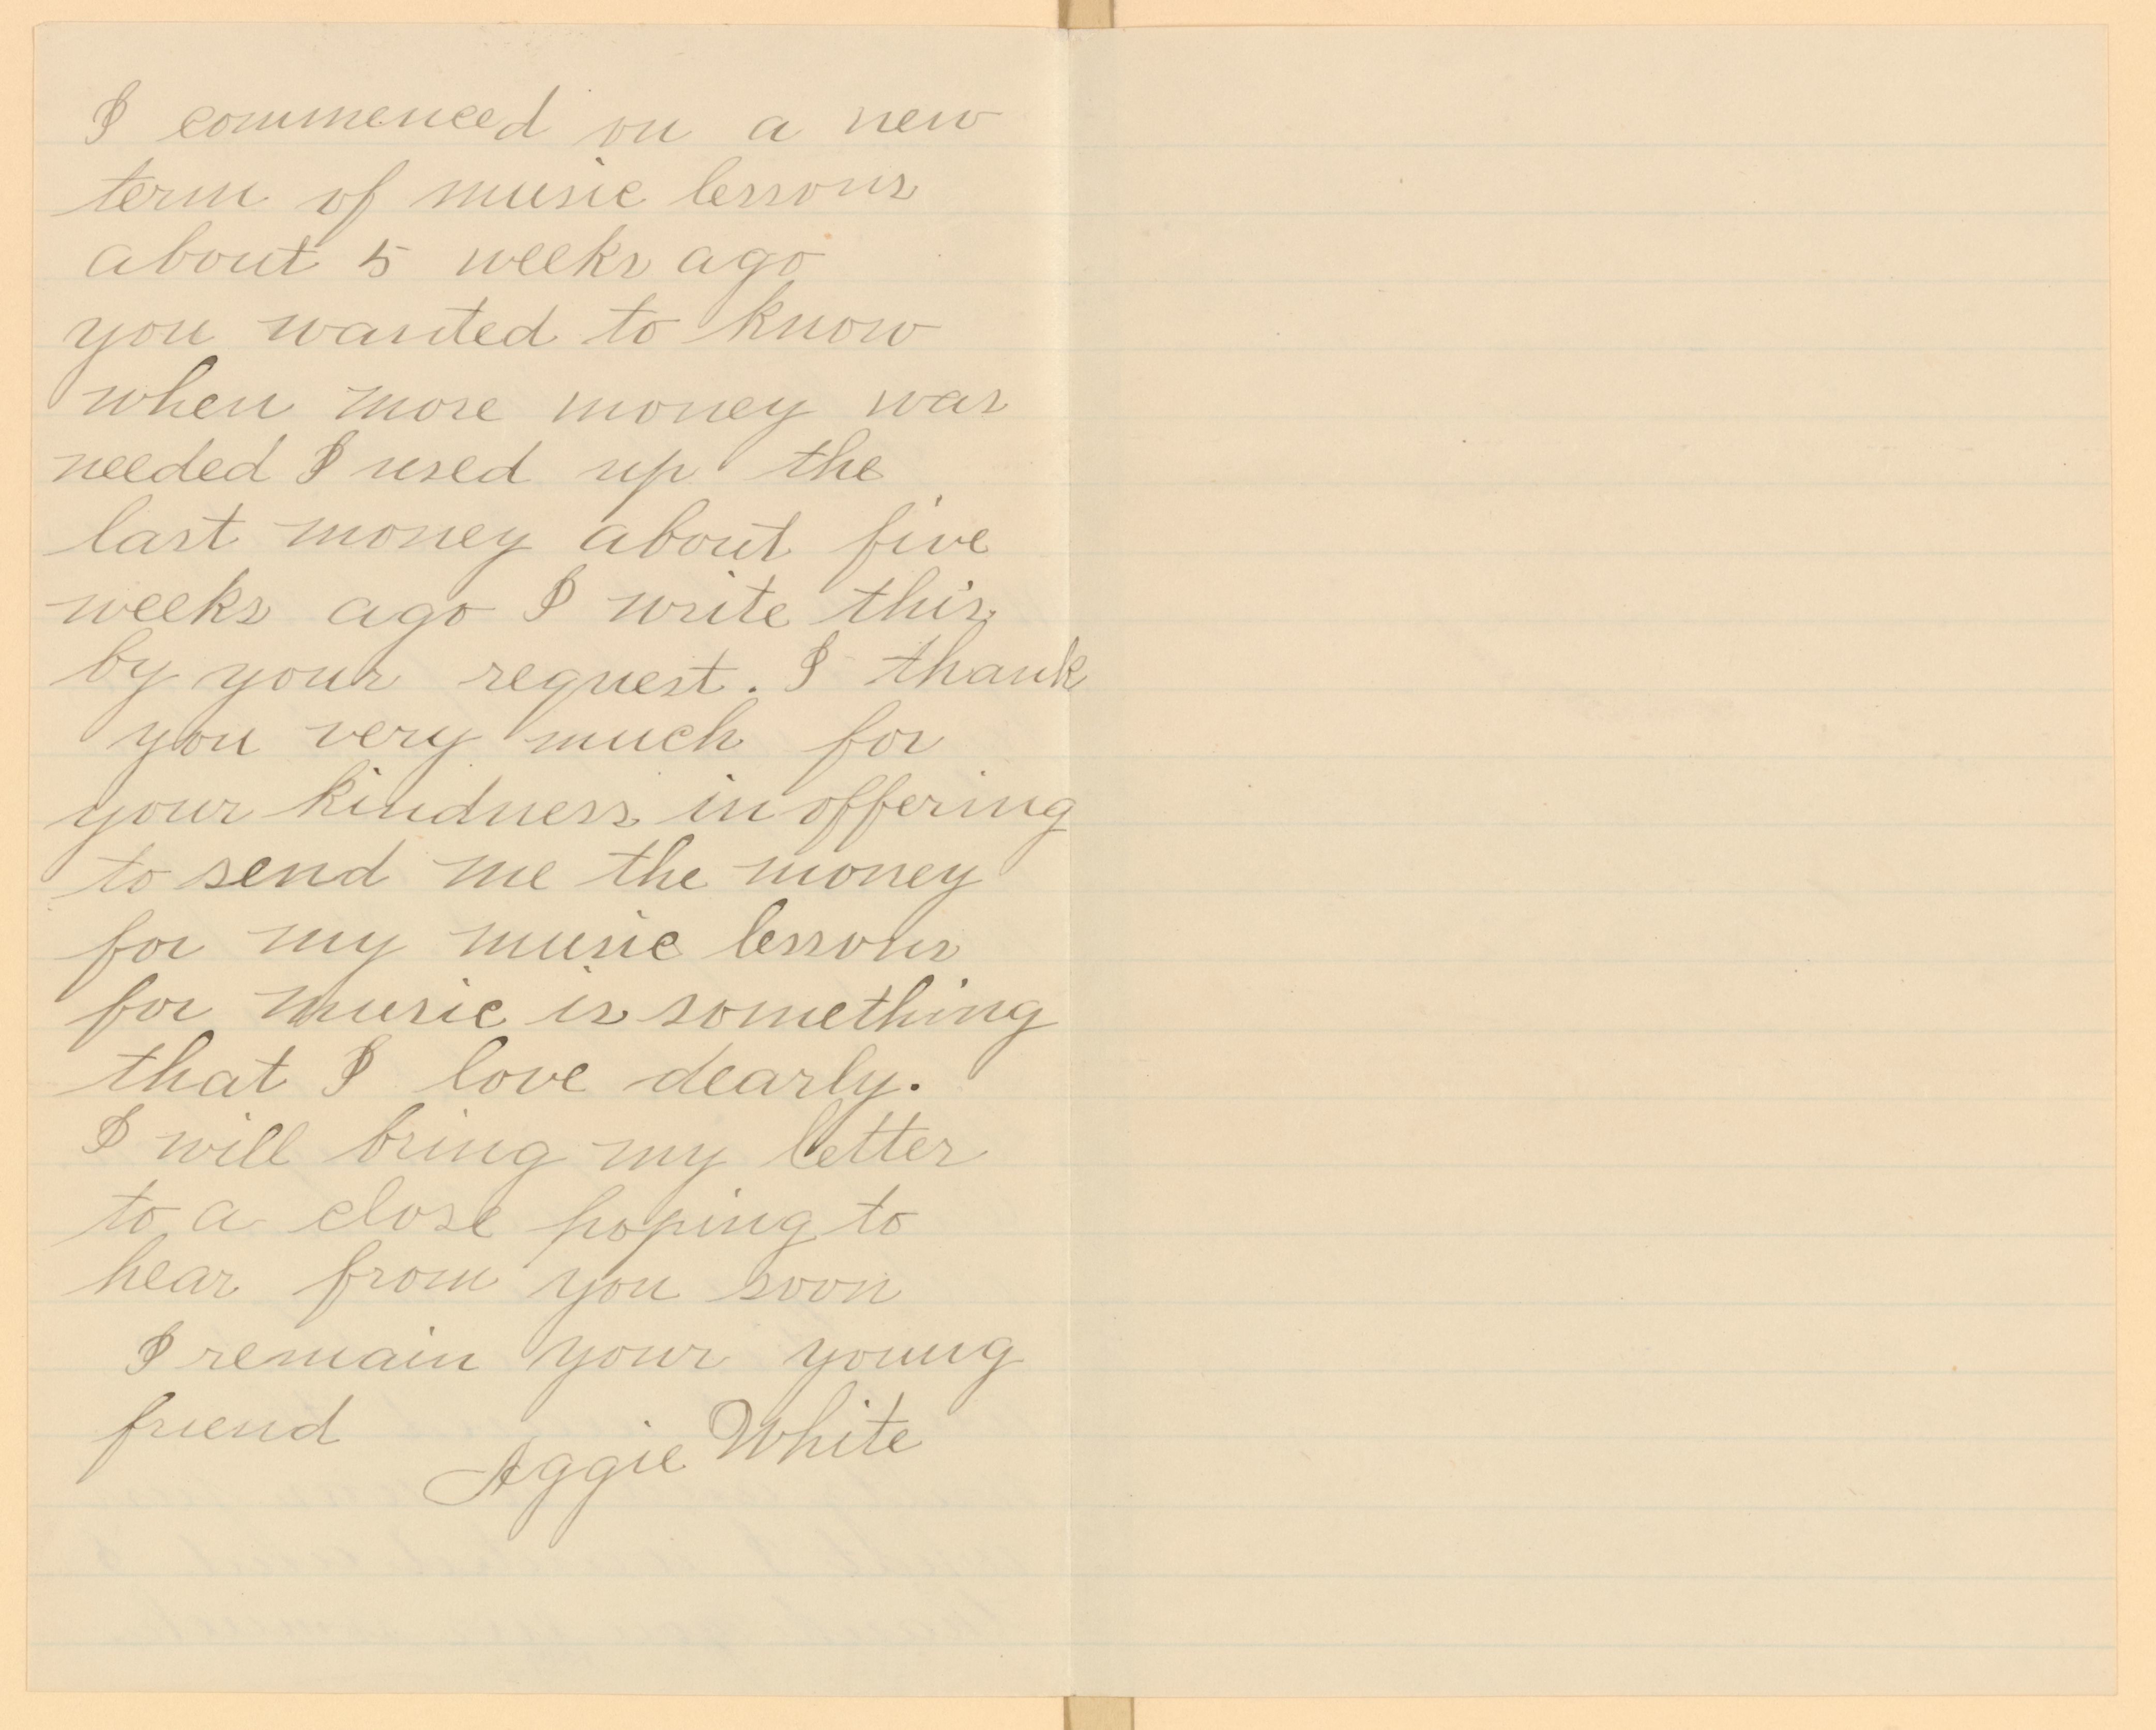 I commenced on a new
term of music lessons
about 5 weeks ago
you wanted to know
when more money was
needed I used up the
last money about five
weeks ago I write this
by your request. I thank
you very much for
your kindness in offering
to send me the money
for my music lessons
for music is something
that I love dearly.
I will bring my letter
to a close hoping to
hear from you soon
I remain your young
friend
Aggie White